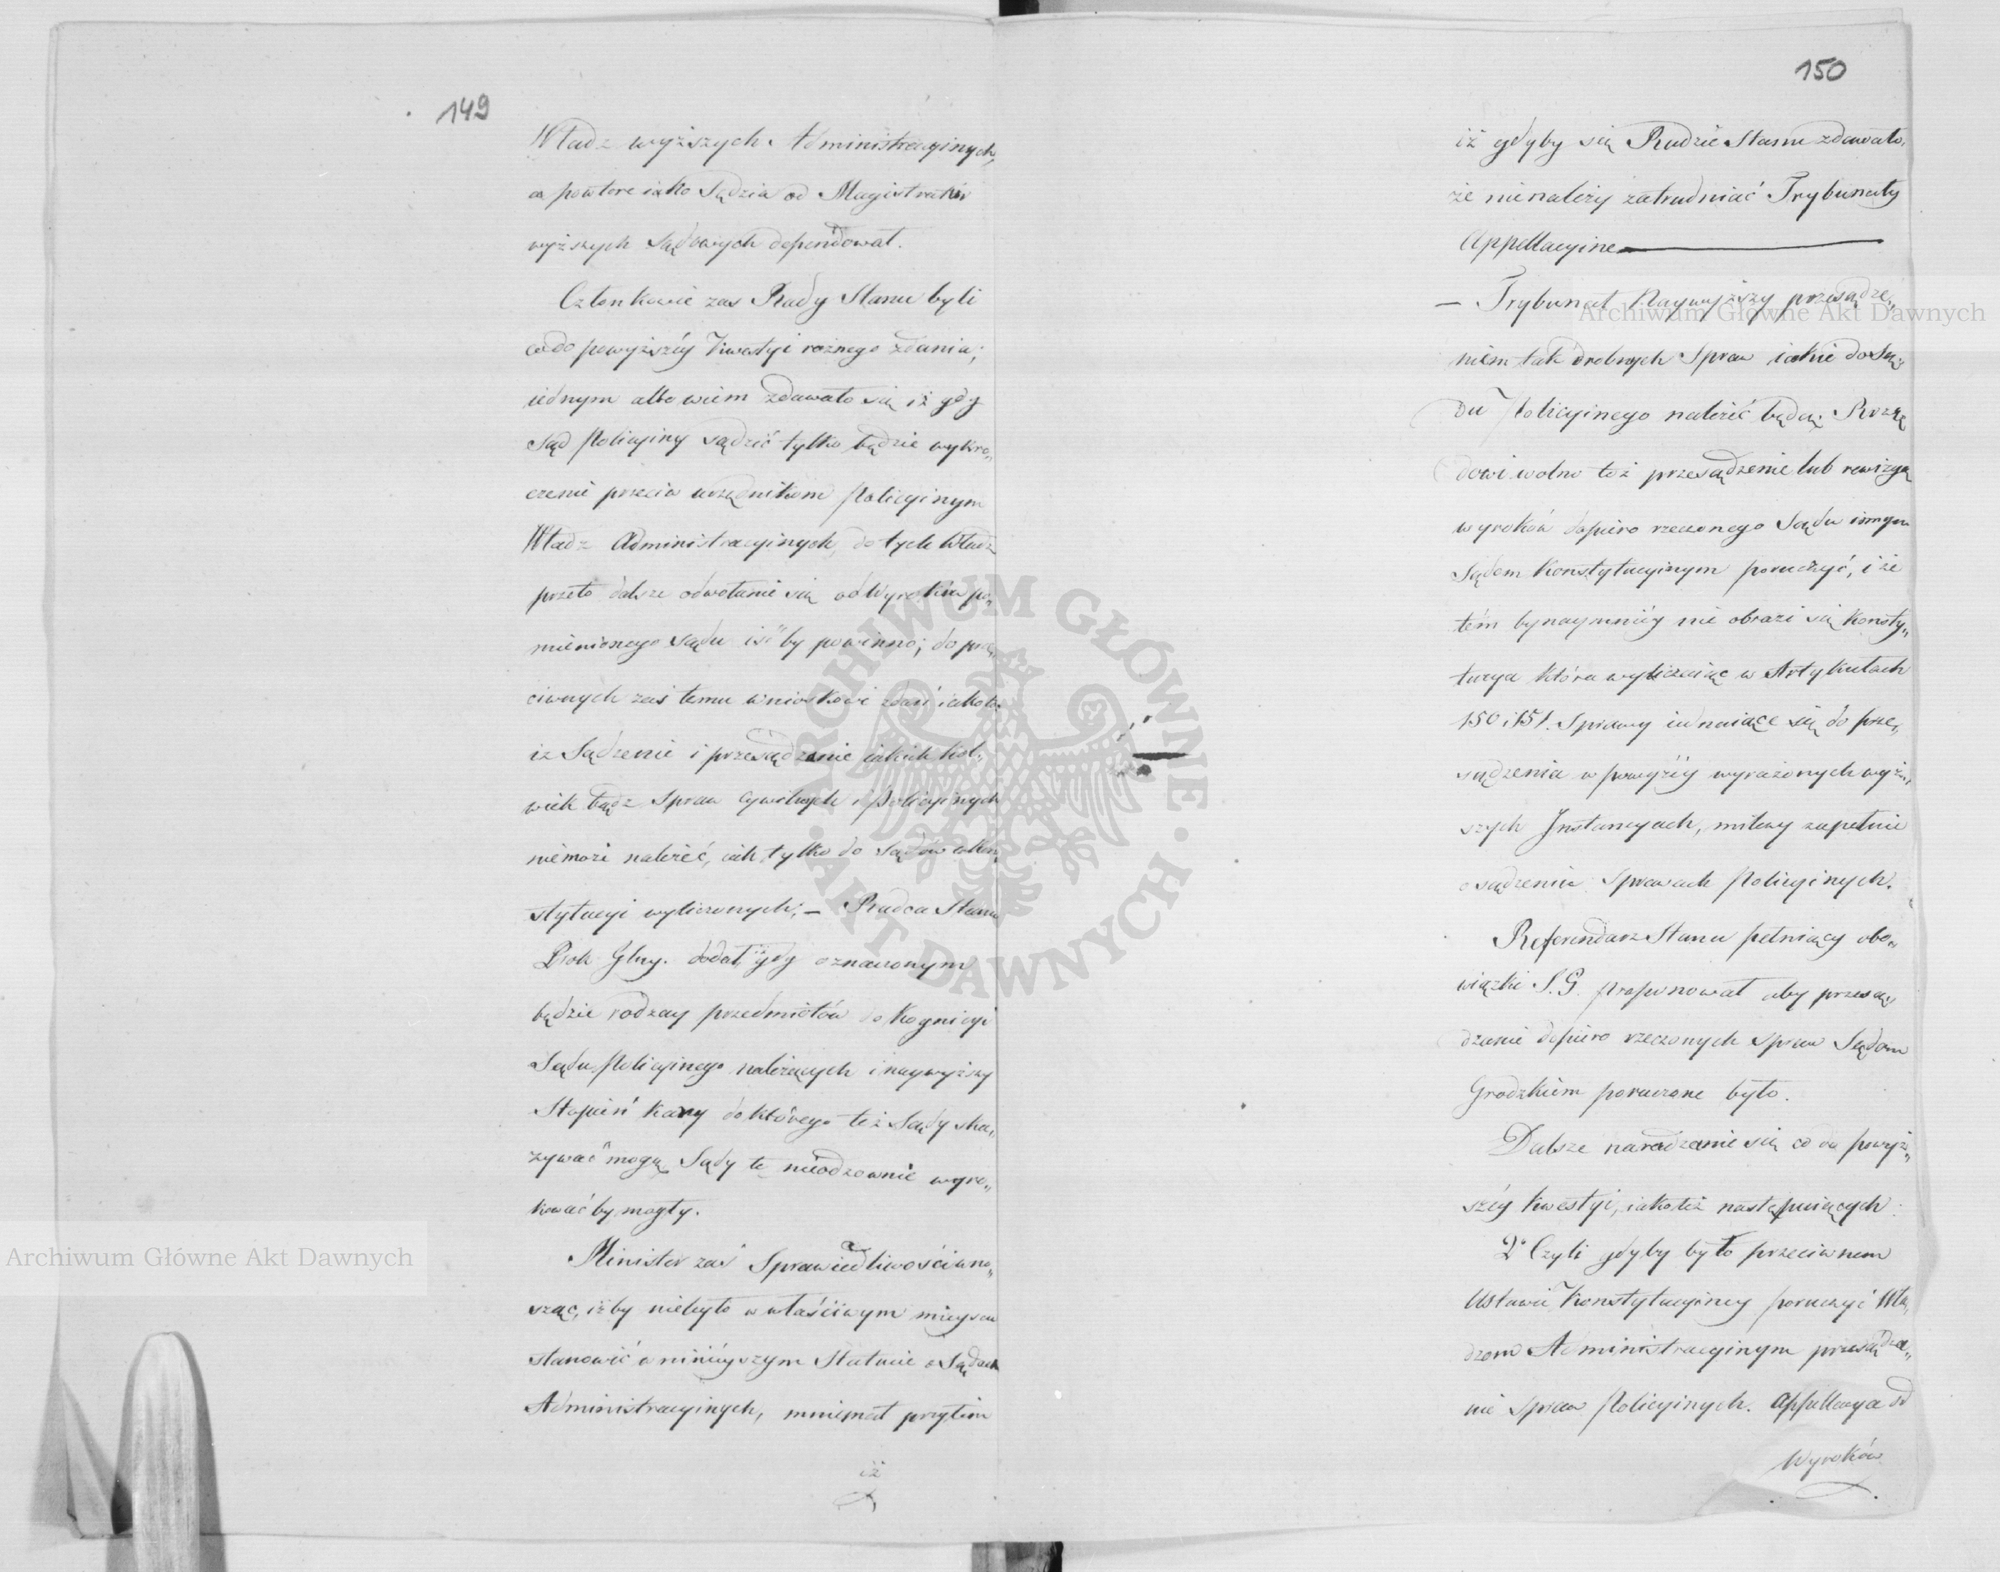 149
Władz wyższych Administracyinych,
a powtore iako Sądzia od Magistratur
wyższych Sądowych dependował.
Członkowie zas Rady Stanu byli
co do powyższéy kwestyi rożnego zdania;
iednym albowiem zdawało się iż gdy
Sąd Policyiny sądzić tylko będzie wykro„
czenie przeciw urzędnikom Policyinym
Władz Administracyinych, do tych Władz
przeto dalsze odwołanie się od Wyroków po„
mienionego sądu iść by powinno; do prze„
ciwnych zaś temu wnioskowi zdań iakoto:
iż Sądzenie i przesądzanie iakichkol„
wiek bądź spraw cywilnych i Policyinych
niemoże należéć, iak tylko do Sądów w Kon„
stytucyi wyliczonych; – Radca Stanu
Prok: Glny. dodał iż gdy oznaczonym
będzie rodzay przedmiotów do kognicyi
Sądu Policyinego należących i naywyższy
Stopień kary do którego też Sądy ska„
zywać mogą, Sądy te nieodzownie wyro„
kować by mogły.
Minister zaś Sprawiedliwości wno„
sząc, iż by niebyło w właściwym mieyscu
stanowić w ninieyszym Statucie o Sądach
Administracyinych, mniemał przytém
iż
150
iż gdyby się Radzie Stanu zdawało,
że nienależy zatrudniać Trybunały
Appellacyine
– Trybunał Naywyższy przesądze„
niem tak drobnych Spraw iakie do Są„
du Policyinego należéć będą; Rzą
dowi wolno też przesądzenie lub rewizyą
wyroków dopiero rzeczonego Sądu innym
Sądom Konstytucyinym poruczyć, i że
tém bynaymniéy nie obrazi się Konsty„
tucya która wyliczaiąc w Artykułach
150 i 151. Sprawy iednaiące się do prze„
sądzenia w powyżéy wyrażonych wyż„
szych Instancyach, milczy zupełnie
o sądzeniu Sprawach Policyinych.
Referendarz Stanu pełniący obo„
wiązki S. G. proponował aby przesą„
dzanie dopiero rzeczonych spraw Sądom
Grodzkiem poruczone było.
Dalsze naradzanie się co do powyż„
széy kwestyi, iakoteż następuiących:
2° Czyli gdyby było przeciwnem
Ustawie Konstytucyiney poruczyć Wła„
dzom Administracyinym przesądza„
nie spraw Policyinych. Appellacya od
Wyroków
Archiwum Główne Akt Dawnych
Archiwum Główne Akt Dawnych
ARCHIWUM GŁÓWNE
AKT DAWNYCH